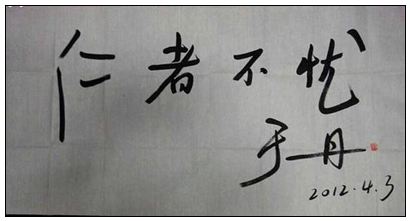 仁者不忧
于丹
2012.4.3